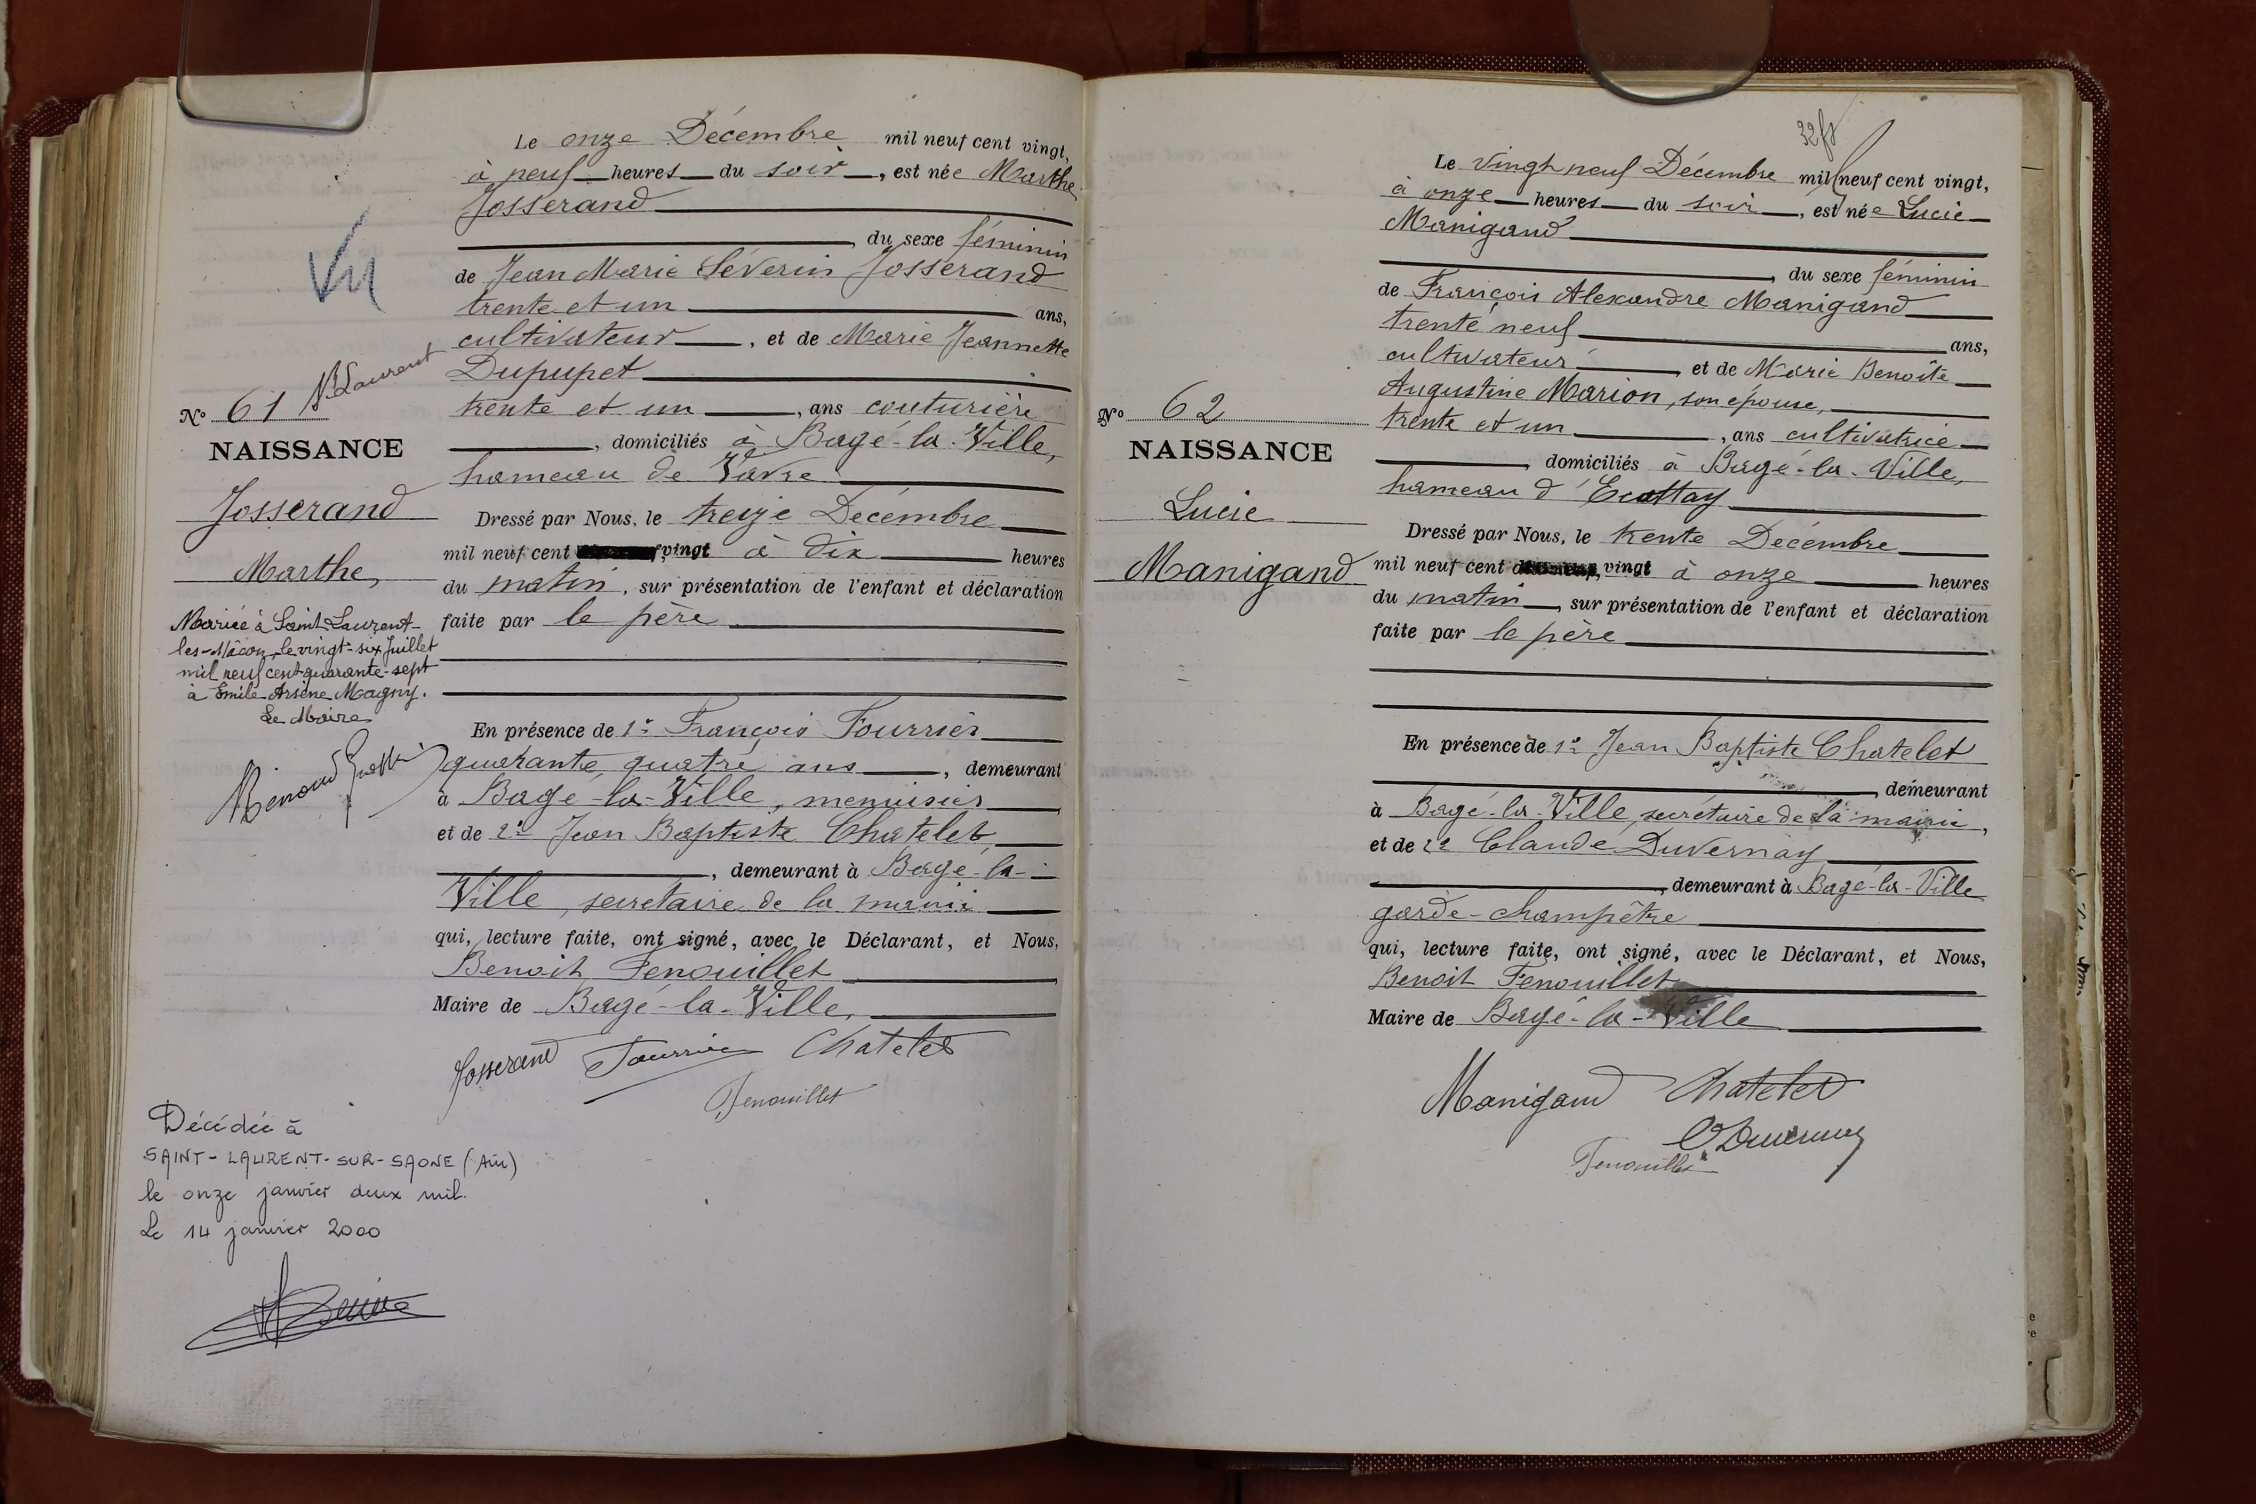 Le onze Décembre mil neuf cent vingt,
à neuf heures du soir, est née Marthe
Josserand
, du sexe féminin
de Jean Marie Séverin Josserand
trente et un ans,
cultivateur, et de Marie Jeannette
Dupupet
trente et un, ans couturière
, domiciliés à Bagé-la-Ville,
hameau de Vavre
Dressé par Nous, le treize Décembre
mil neuf cent vingt à dix heures
du matin, sur présentation de l'enfant et déclaration
faite par le père
En présence de 1° François Fourrier
quarante quatre ans, demeurant
à Bagé-la-Ville, menuisier
et de 2° Jean Baptiste Chatelet,
, demeurant à Bagé-la-
Ville, secrétaire de la mairie
qui, lecture faite, ont signé, avec le Déclarant, et Nous,
Benoit Fenouillet
Maire de Bagé-la-Ville,
Josserand Fourrier Chatelet
Fenouillet
Vu
St Laurent
N° 61
NAISSANCE
Josserand
Marthe,
Mariée à Saint-Laurent-
les-Mâcon, le vingt-six Juillet
mil neuf cent quarante-sept
à Emile Arsène Magny.
Le Maire
Décédée à
SAINT-LAURENT-SUR-SAONE (Ain)
le onze janvier deux mil.
Le 14 janvier 2000
Le vingt neuf Décembre mil neuf cent vingt,
à onze heures du soir, est née Lucie
Manigand
, du sexe féminin
de François Alexandre Manigand
trente neuf ans,
cultivateur et de Marie Benoîte
Augustine Marion, son épouse,
trente et un, ans cultivatrice
domiciliés à Bagé-la-Ville,
hameau d'Ecottay
Dressé par Nous, le trente Décembre
mil neuf cent vingt à onze heures
du matin, sur présentation de l'enfant et déclaration
faite par le père
En présence de 1° Jean Baptiste Chatelet
, demeurant
à Bagé-la-Ville, secrétaire de la mairie,
et de 2° Claude Duvernay
, demeurant à Bagé-la-Ville
garde-champêtre
qui, lecture faite, ont signé, avec le Déclarant, et Nous,
Benoit Fenouillet
Maire de Bagé-la-Ville
Manigand Chatelet
C Duvernay
Fenouillet
N° 62
NAISSANCE
Lucie
Manigand